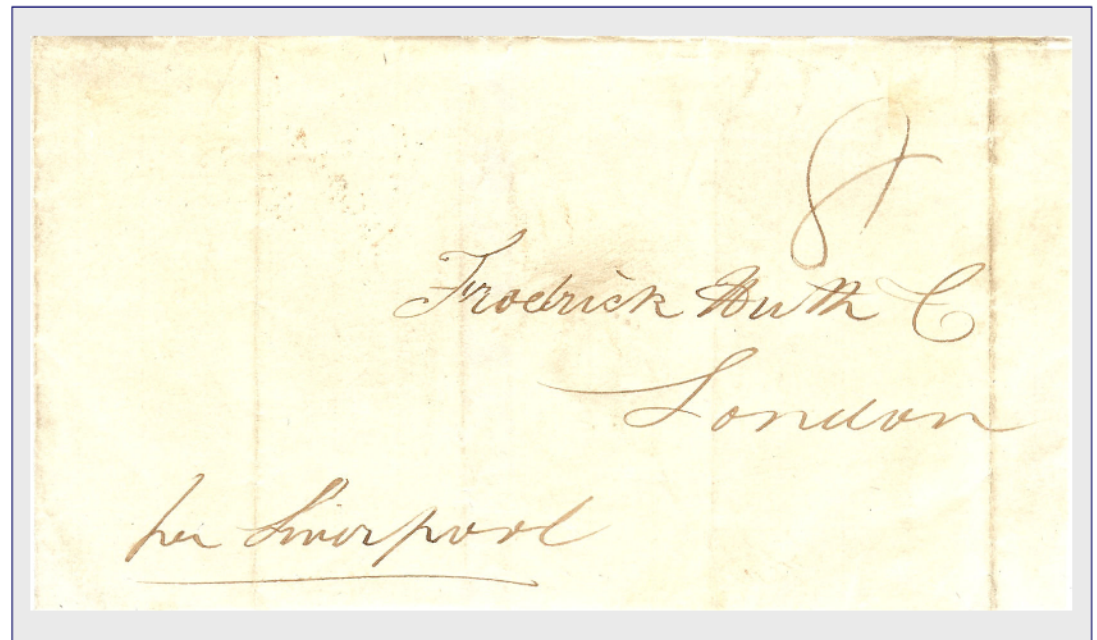 8
Fredrick Huth C
London
per Liverpool